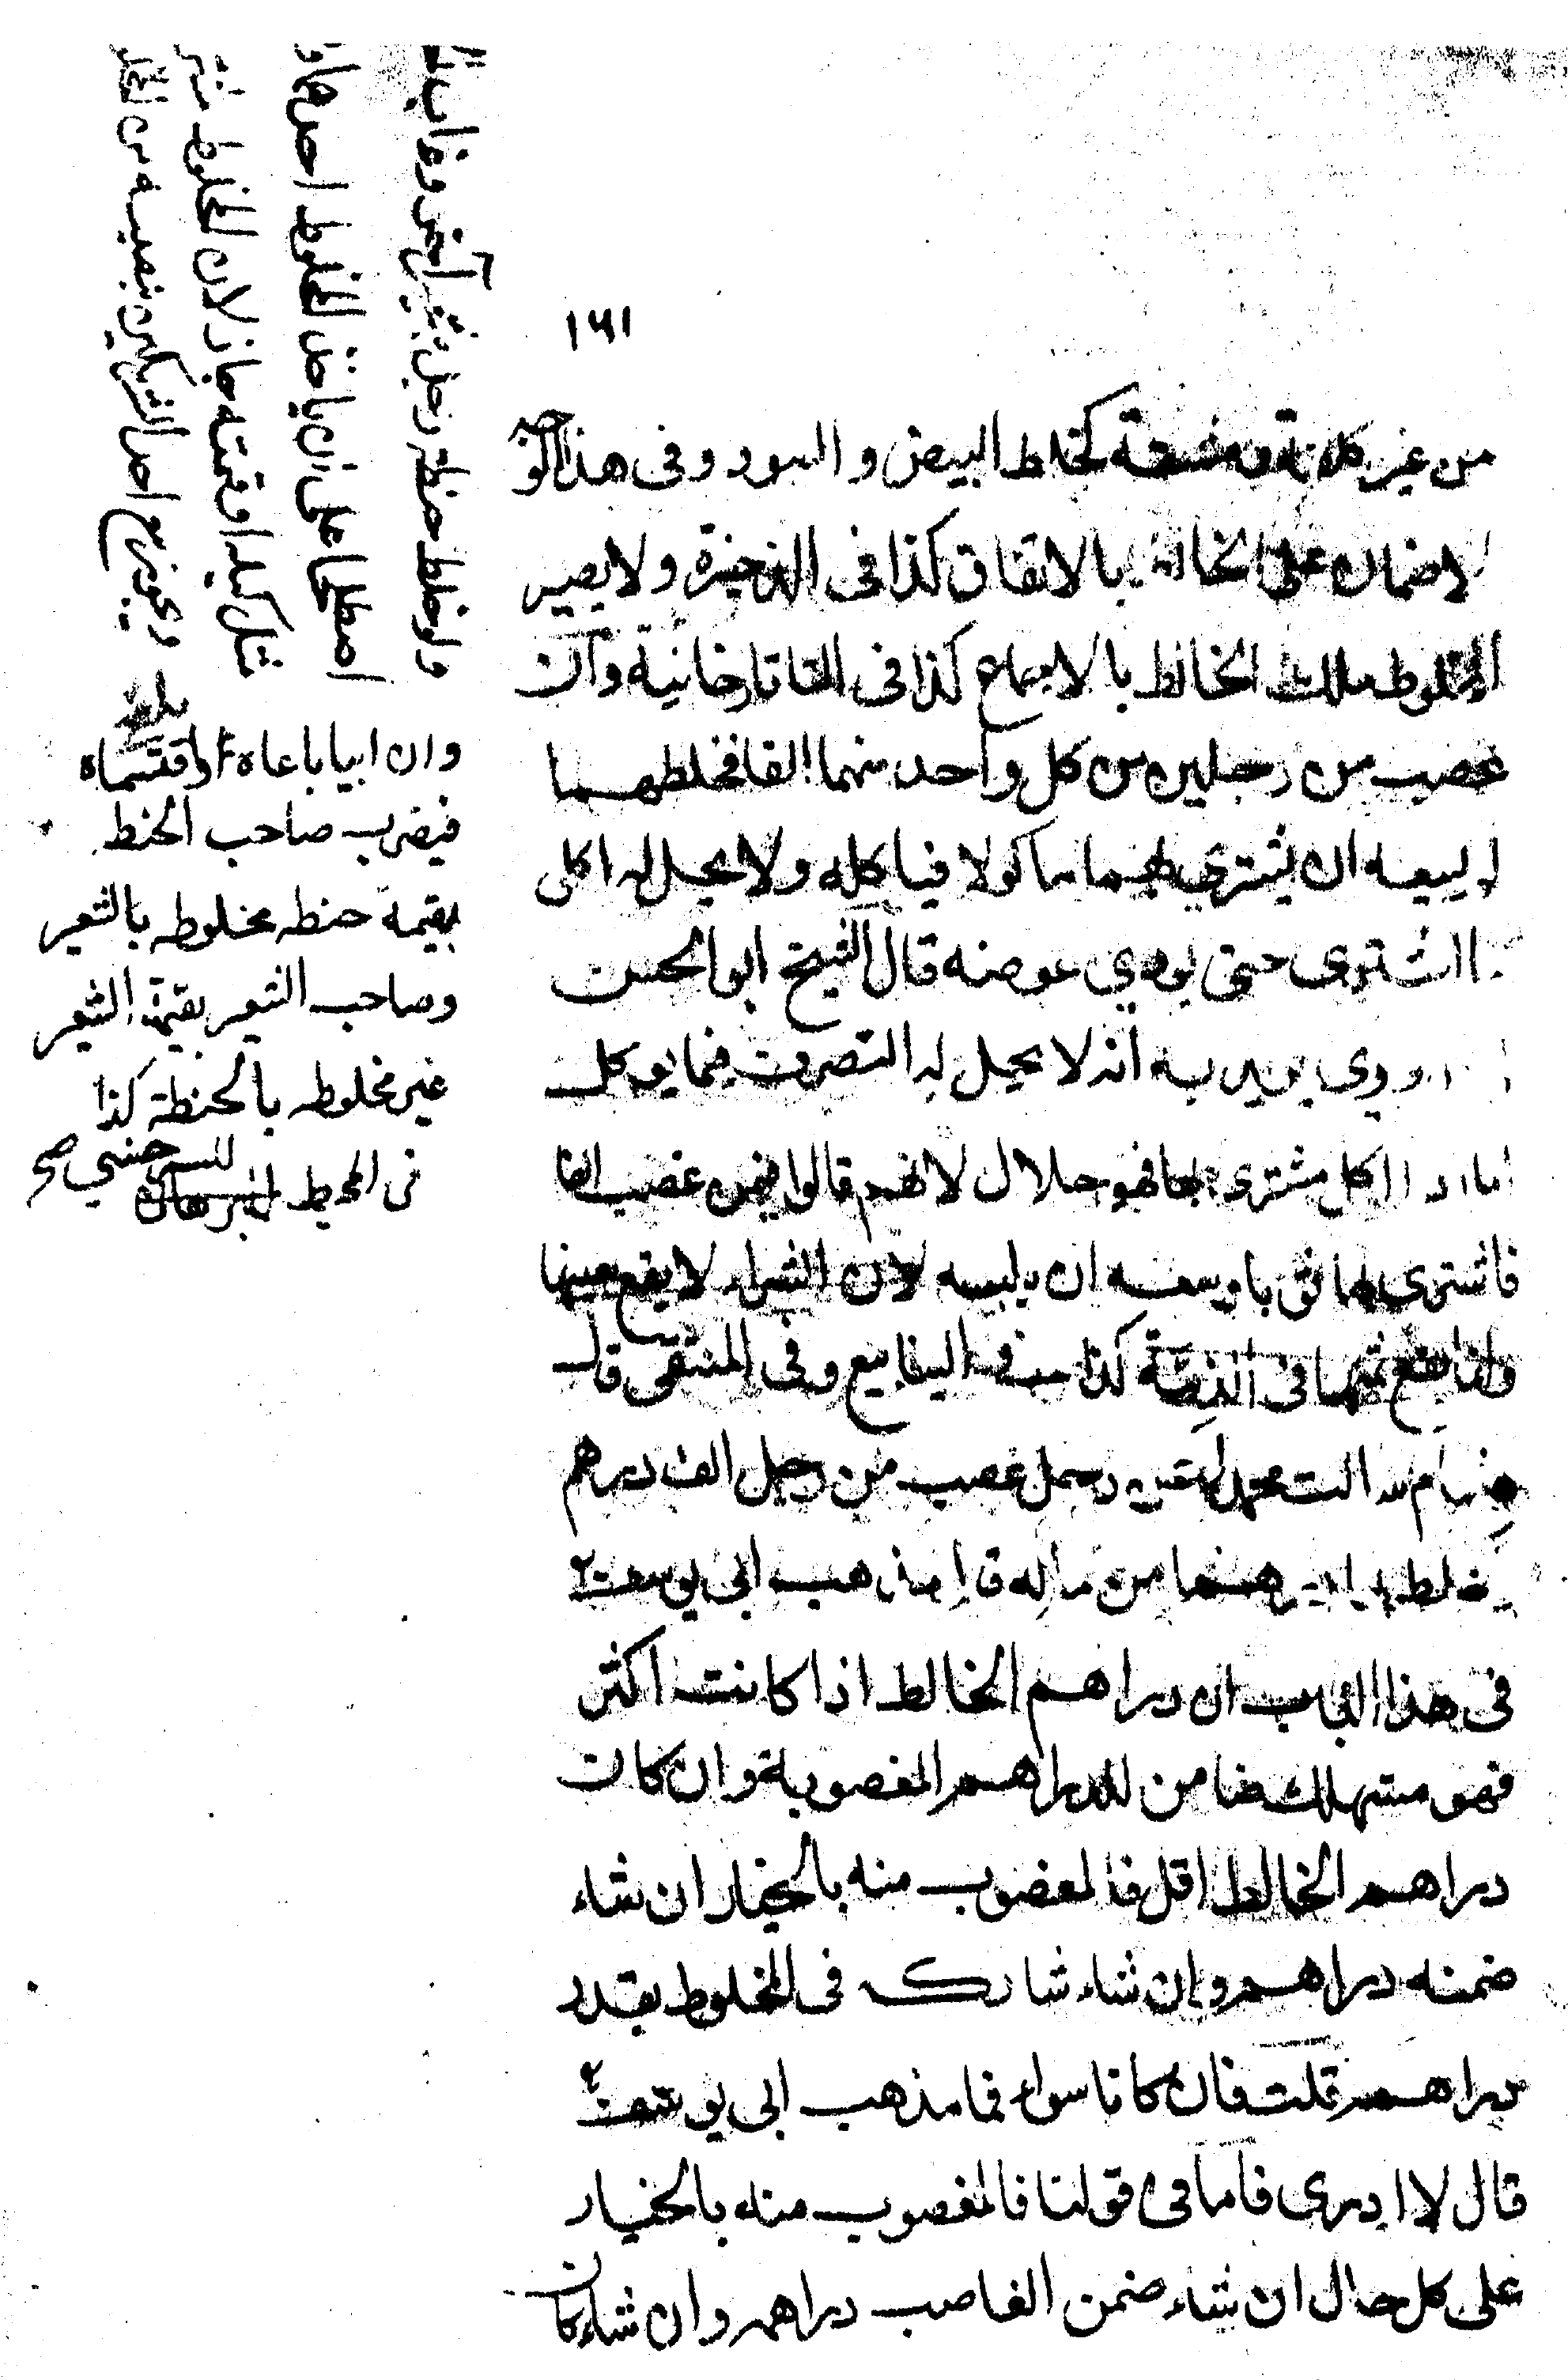 ١٦١
من غير كلفة ومشقة كخلط البيض والسود وفى هذا الوجه
لاضمان على الخالط بالاتفاق كذا فى الذخيرة ولا يصير
المخلوط ملك الخالط بالاجماع كذا فى التاتارخانية وان
غصب من رجلين من كل واحد منهما الفا فخلطهما
لم يسعه ان يشترى بهما ماكولا فياكله ولا يحل له اكل
ما اشترى حتى يودي عوضه قال الشيخ ابو الحسن
يريد به انه لا يحل له التصرف فيما يوكل
اكل مشترى بها فهو حلال لانهم قالوا فيمن غصب الفا
فاشترى بها ثوبا وسعه ان يلبسه لان الشراء لا يقع بعينها
وانما يقع بمثلها فى الذمة كذا فى الينابيع وفى المنتقى قال
هشام سالت محمدا عن رجل غصب من رجل الف درهم
فخلط بها دراهم من ماله قال مذهب ابى يوسف
فى هذا الباب ان دراهم الخالط اذا كانت اكثر
فهو مستهلك ضامن للدراهم المغصوبة وان كان
دراهم الخالط اقل فالمغصوب منه بالخيار ان شاء
ضمنه دراهم وان شاء شارك فى المخلوط بقدر
دراهمه قلت فان كانا سواء فما مذهب ابى يوسف
قال لا ادرى فاما فى قولنا فالمغصوب منه بالخيار
على كل حال ان شاء ضمن الغاصب دراهمه وان شاء كان
ولو خلط حنطة رجل بشعير آخر وغاب
اصطلحا على ان ياخذ المخلوط احدهما و
مثل كيله او قيمته جاز لان المخلوط
ويجوز بيع احد الشريكين نصيبه من
وان ابيا باعاه او اقتسماه
فيضرب صاحب الحنط
بقيمة حنطه مخلوطه بالشعير
وصاحب الشعير بقيمة الشعير
غير مخلوطه بالحنطة كذا
فى المحيط للسرخسي صح